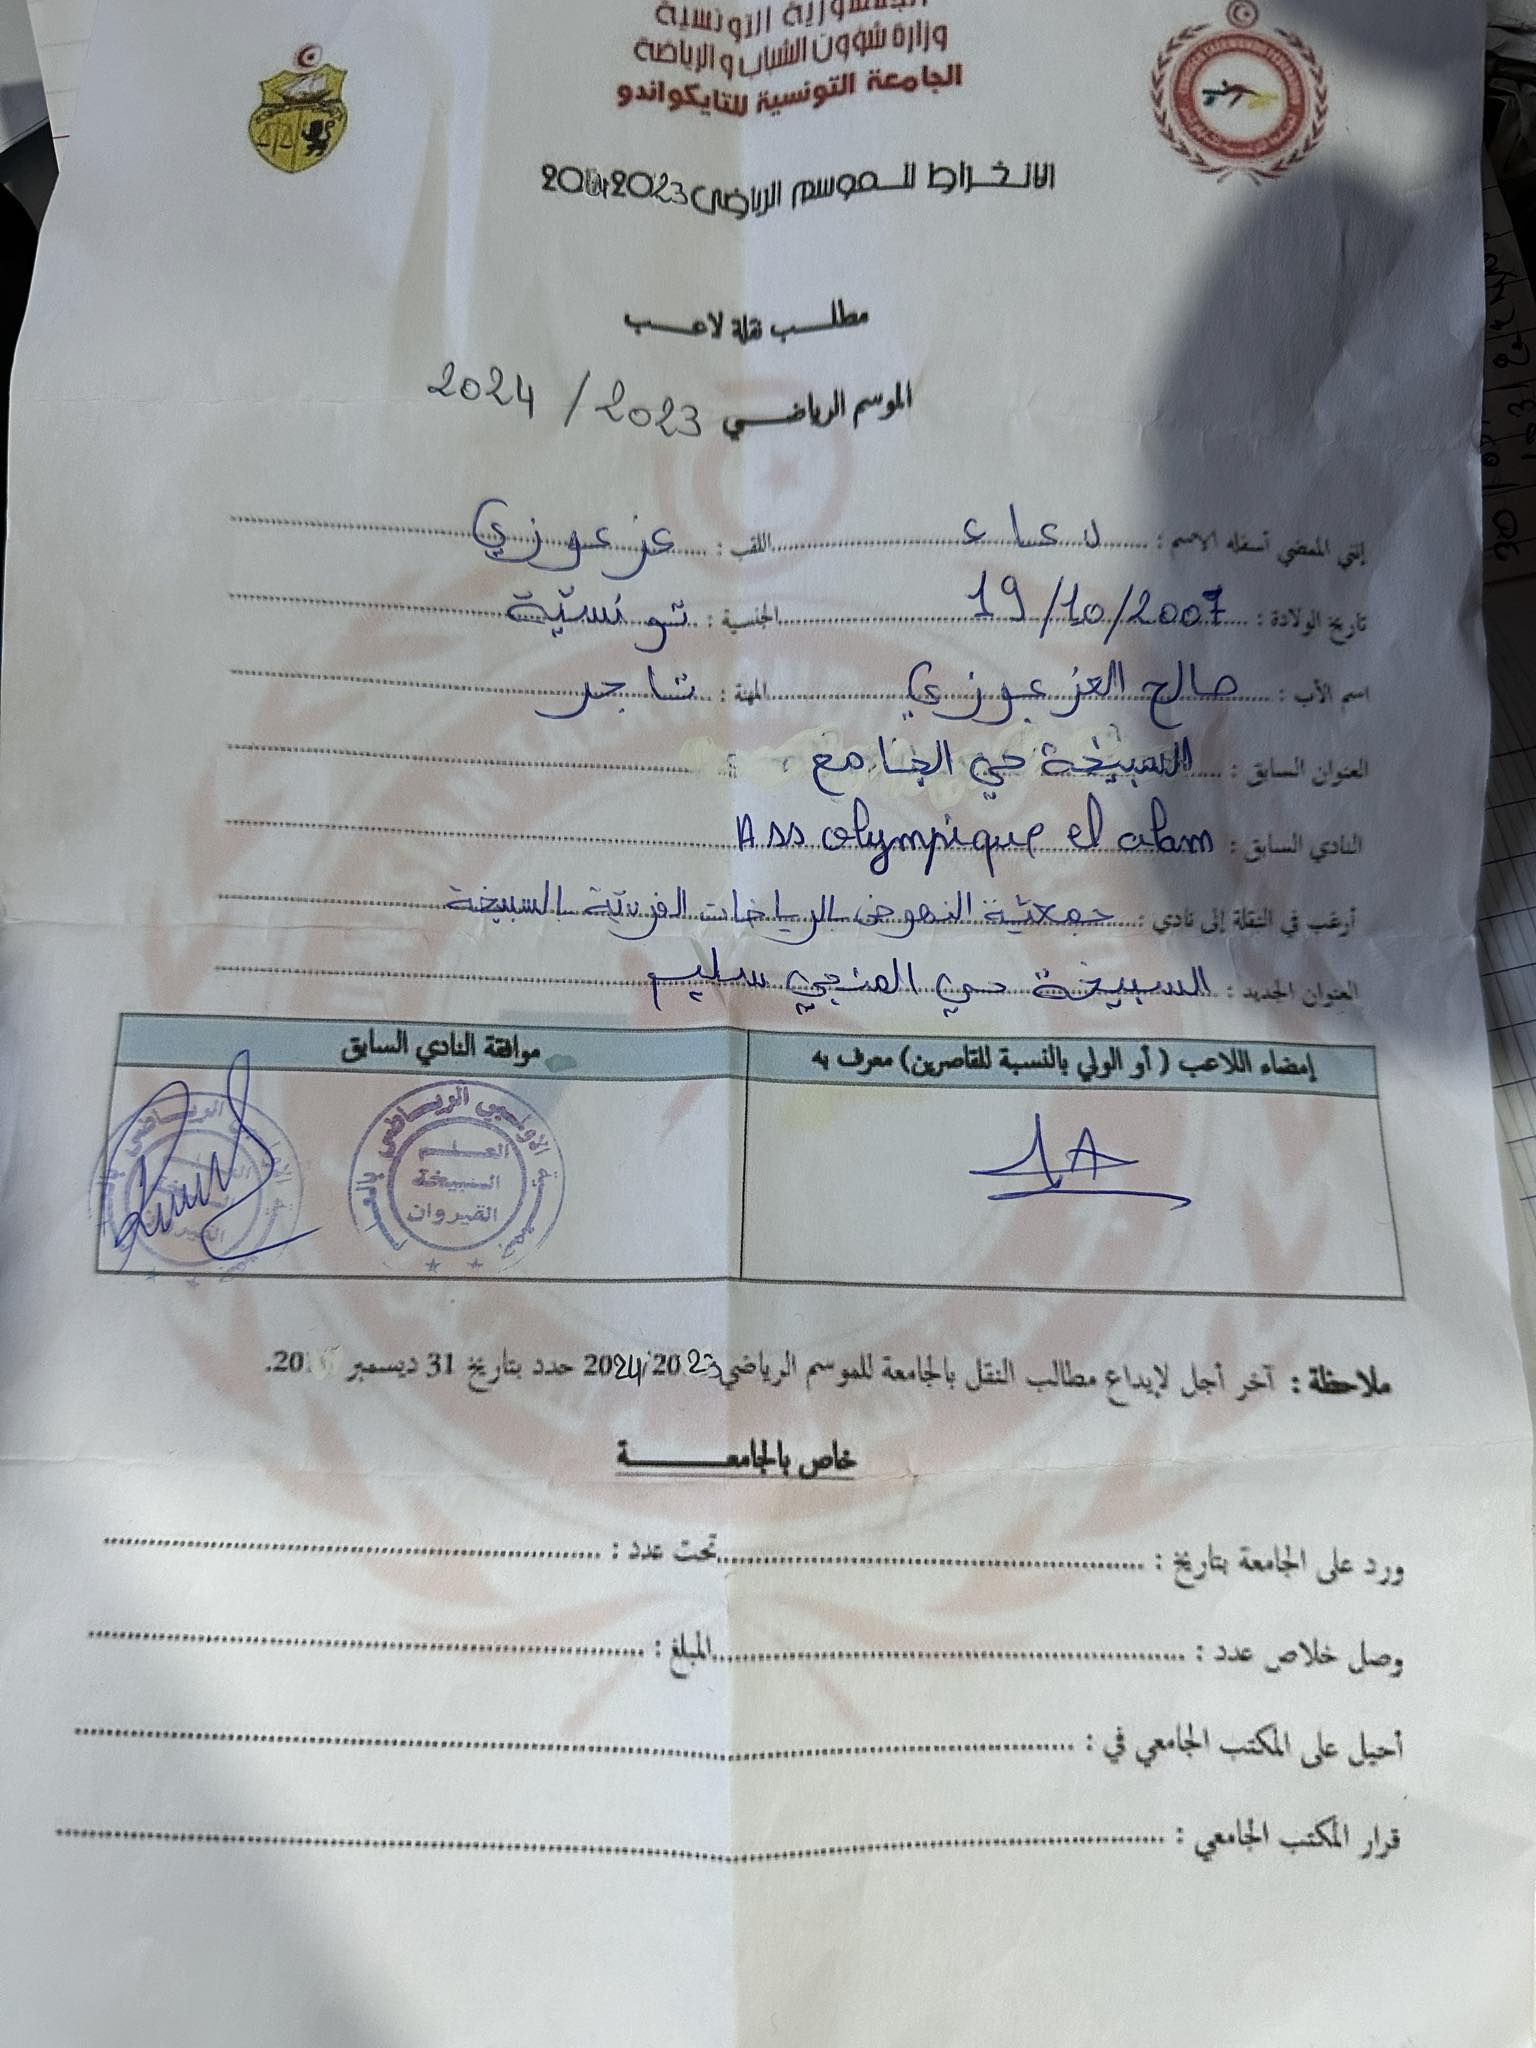 الجمهورية التونسية
وزارة شؤون الشباب والرياضة
الجامعة التونسية للتايكواندو
الانخراط للموسم الرياضي 2023
مطلب نقلة لاعب
الموسم الرياضي 2023/2024
إنني الممضي أسفله الاسم : دعاء اللقب : عزعوزي
تاريخ الولادة : 19/10/2007 الجنسية : تونسيّة
اسم الأب : صالح العزعوزي المهنة : تاجر
العنوان السابق : السبيخة حي الجامع
النادي السابق : Ass olympique el alam
أرغب في النقلة إلى نادي : جمعية النهوض بالرياضات الفردية السبيخة
العنوان الجديد : السبيخة حي المنجي سليم
إمضاء اللاعب ( أو الولي بالنسبة للقاصرين) معرف به
موافقة النادي السابق
العلم
السبيخة
القيروان
ملاحظة : آخر أجل لإيداع مطالب النقل بالجامعة للموسم الرياضي 2023/2024 حدد بتاريخ 31 ديسمبر 20.
خاص بالجامعة
ورد على الجامعة بتاريخ : تحت عدد :
وصل خلاص عدد : المبلغ :
أحيل على المكتب الجامعي في :
قرار المكتب الجامعي :